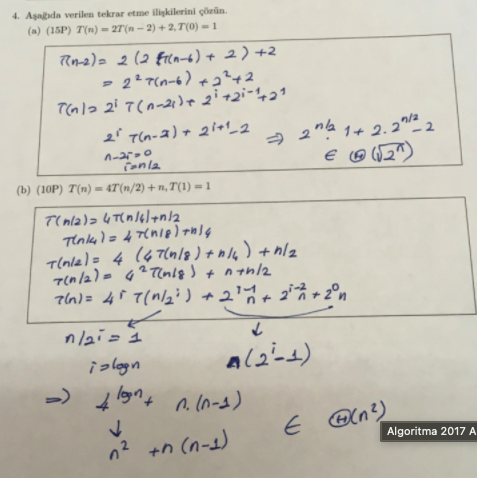 4. Aşağıda verilen tekrar etme ilişkilerini çözün.
(a) (15P) T(n) = 2T(n − 2) + 2, T(0) = 1
T(n-2) = 2 (2 T(n-6) + 2) + 2
= 2² T(n-6) + 2² + 2
T(n) = 2ⁱ T(n-2i) + 2ⁱ + 2ⁱ⁻¹ + 2¹
2ⁱ T(n-2) + 2ⁱ⁺¹ - 2 ⇒ 2^(n/2) . 1 + 2 . 2^(n/2) - 2
n-2i=0
i=n/2
∈ Θ(√2ⁿ)
(b) (10P) T(n) = 4T(n/2) + n, T(1) = 1
T(n/2) = 4T(n/4) + n/2
T(n/4) = 4T(n/8) + n/4
T(n/2) = 4 (4T(n/8) + n/4) + n/2
T(n/2) = 4² T(n/8) + n + n/2
T(n) = 4ⁱ T(n/2ⁱ) + 2ⁱ⁻¹n + 2ⁱ⁻²n + 2⁰n
n/2ⁱ = 1 ↓
i = logn n(2ⁱ - 1)
⇒ 4^(logn) + n.(n-1)
↓
n² + n(n-1) ∈ Θ(n²)
Algoritma 2017 A